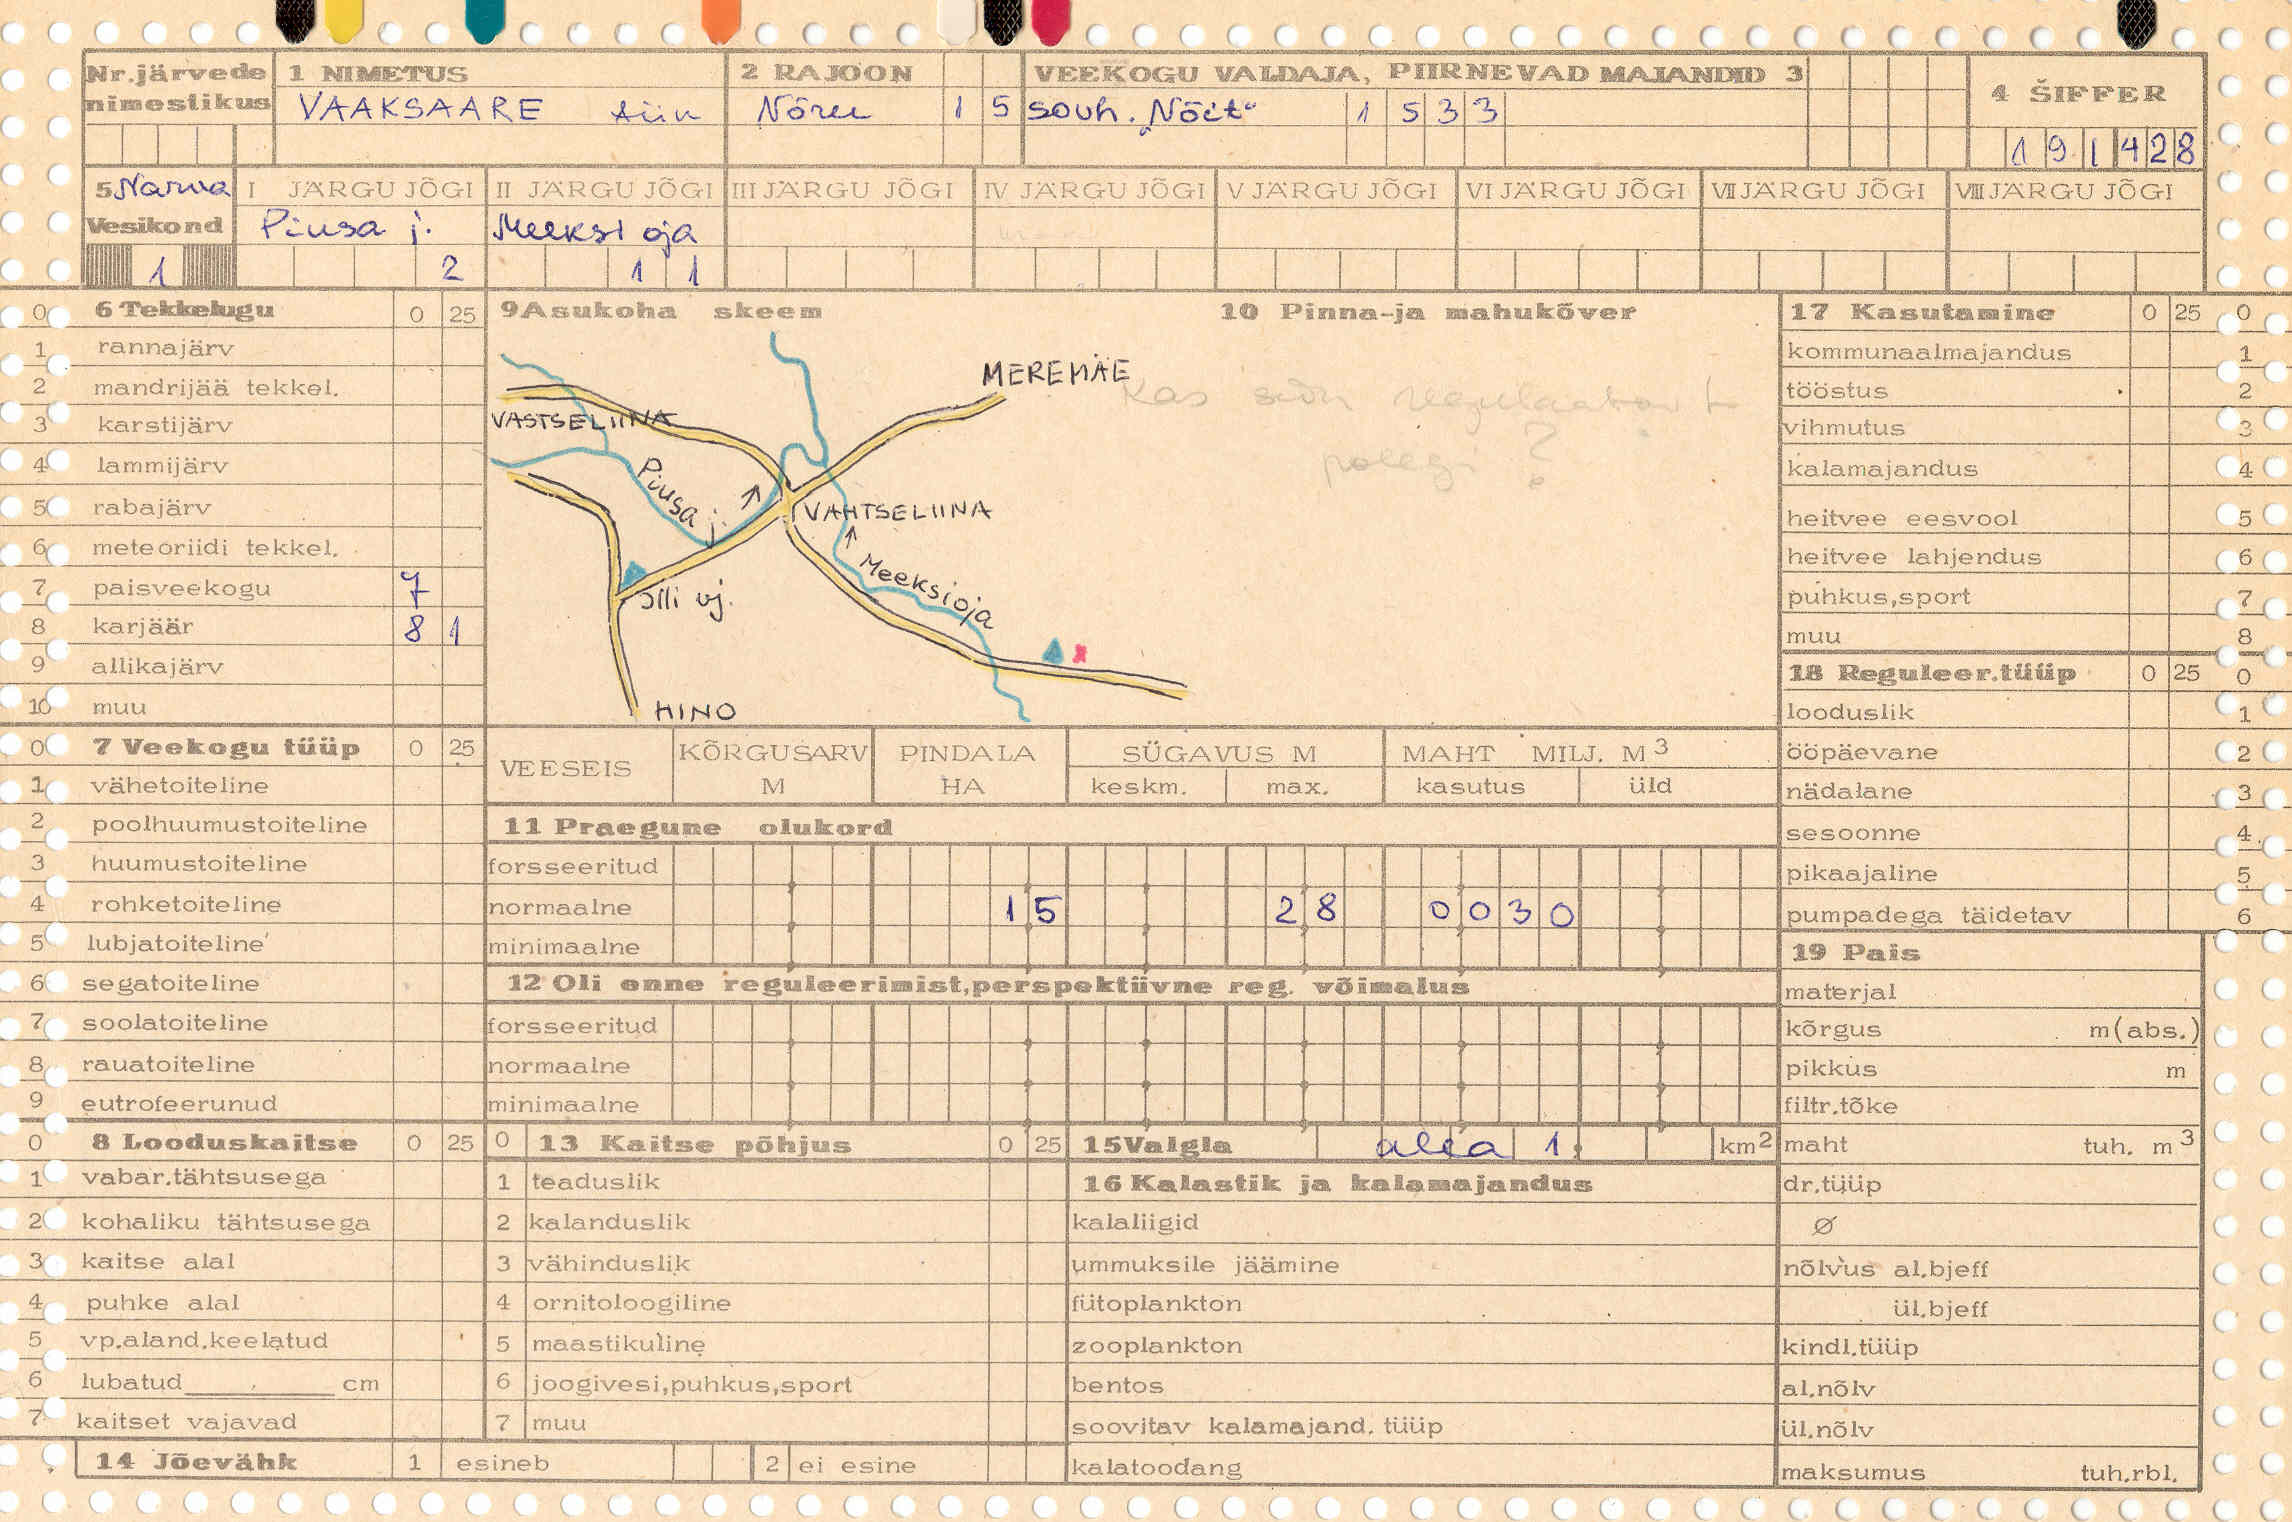 Nr.järvede nimestikus
1 NIMETUS
VAAKSAARE tiik
2 RAJOON
Võru 1 5
VEEKOGU VALDAJA, PIIRNEVAD MAJANDID 3
sovh. „Võit“ 1 5 3 3
4 ŠIFFER
1 9 1 4 2 8
5 Narva
Vesikond
1
I JÄRGU JÕGI
Piusa j.
2
II JÄRGU JÕGI
Meeksi oja
1 1
III JÄRGU JÕGI
IV JÄRGU JÕGI
V JÄRGU JÕGI
VI JÄRGU JÕGI
VII JÄRGU JÕGI
VIII JÄRGU JÕGI
0 6 Tekkelugu 0 25
1 rannajärv
2 mandrijää tekkel.
3 karstijärv
4 lammijärv
5 rabajärv
6 meteoriidi tekkel.
7 paisveekogu 7
8 karjäär 8 1
9 allikajärv
10 muu
0 7 Veekogu tüüp 0 25
1 vähetoiteline
2 poolhuumustoiteline
3 huumustoiteline
4 rohketoiteline
5 lubjatoiteline
6 segatoiteline
7 soolatoiteline
8 rauatoiteline
9 eutrofeerunud
0 8 Looduskaitse 0 25
1 vabar.tähtsusega
2 kohaliku tähtsusega
3 kaitse alal
4 puhke alal
5 vp.aland.keelatud
6 lubatud ______ cm
7 kaitset vajavad
14 Jõevähk 1 esineb 2 ei esine
9 Asukoha skeem
MEREMÄE
VASTSELIINA
Piusa j.
VAHTSELIINA
Meeksi oja
Illi vj.
HINO
x
10 Pinna-ja mahukõver
Kas siin regulaatorit
polegi ?
VEESEIS
KÕRGUSARV M
PINDALA HA
SÜGAVUS M
keskm. max.
MAHT MILJ. M3
kasutus üld
11 Praegune olukord
forsseeritud
normaalne 1 5 2 8 0 0 3 0
minimaalne
12 Oli enne reguleerimist,perspektiivne reg. võimalus
forsseeritud
normaalne
minimaalne
0 13 Kaitse põhjus 0 25
1 teaduslik
2 kalanduslik
3 vähinduslik
4 ornitoloogiline
5 maastikuline
6 joogivesi,puhkus,sport
7 muu
15 Valgla alla 1. km2
16 Kalastik ja kalamajandus
kalaliigid
ummuksile jäämine
fütoplankton
zooplankton
bentos
soovitav kalamajand. tüüp
kalatoodang
17 Kasutamine 0 25 0
kommunaalmajandus 1
tööstus 2
vihmutus 3
kalamajandus 4
heitvee eesvool 5
heitvee lahjendus 6
puhkus,sport 7
muu 8
18 Reguleer.tüüp 0 25 0
looduslik 1
ööpäevane 2
nädalane 3
sesoonne 4
pikaajaline 5
pumpadega täidetav 6
19 Pais
materjal
kõrgus m(abs.)
pikkus m
filtr.tõke
maht tuh. m3
dr.tüüp
Ø
nõlvus al.bjeff
ül.bjeff
kindl.tüüp
al.nõlv
ül.nõlv
maksumus tuh.rbl.